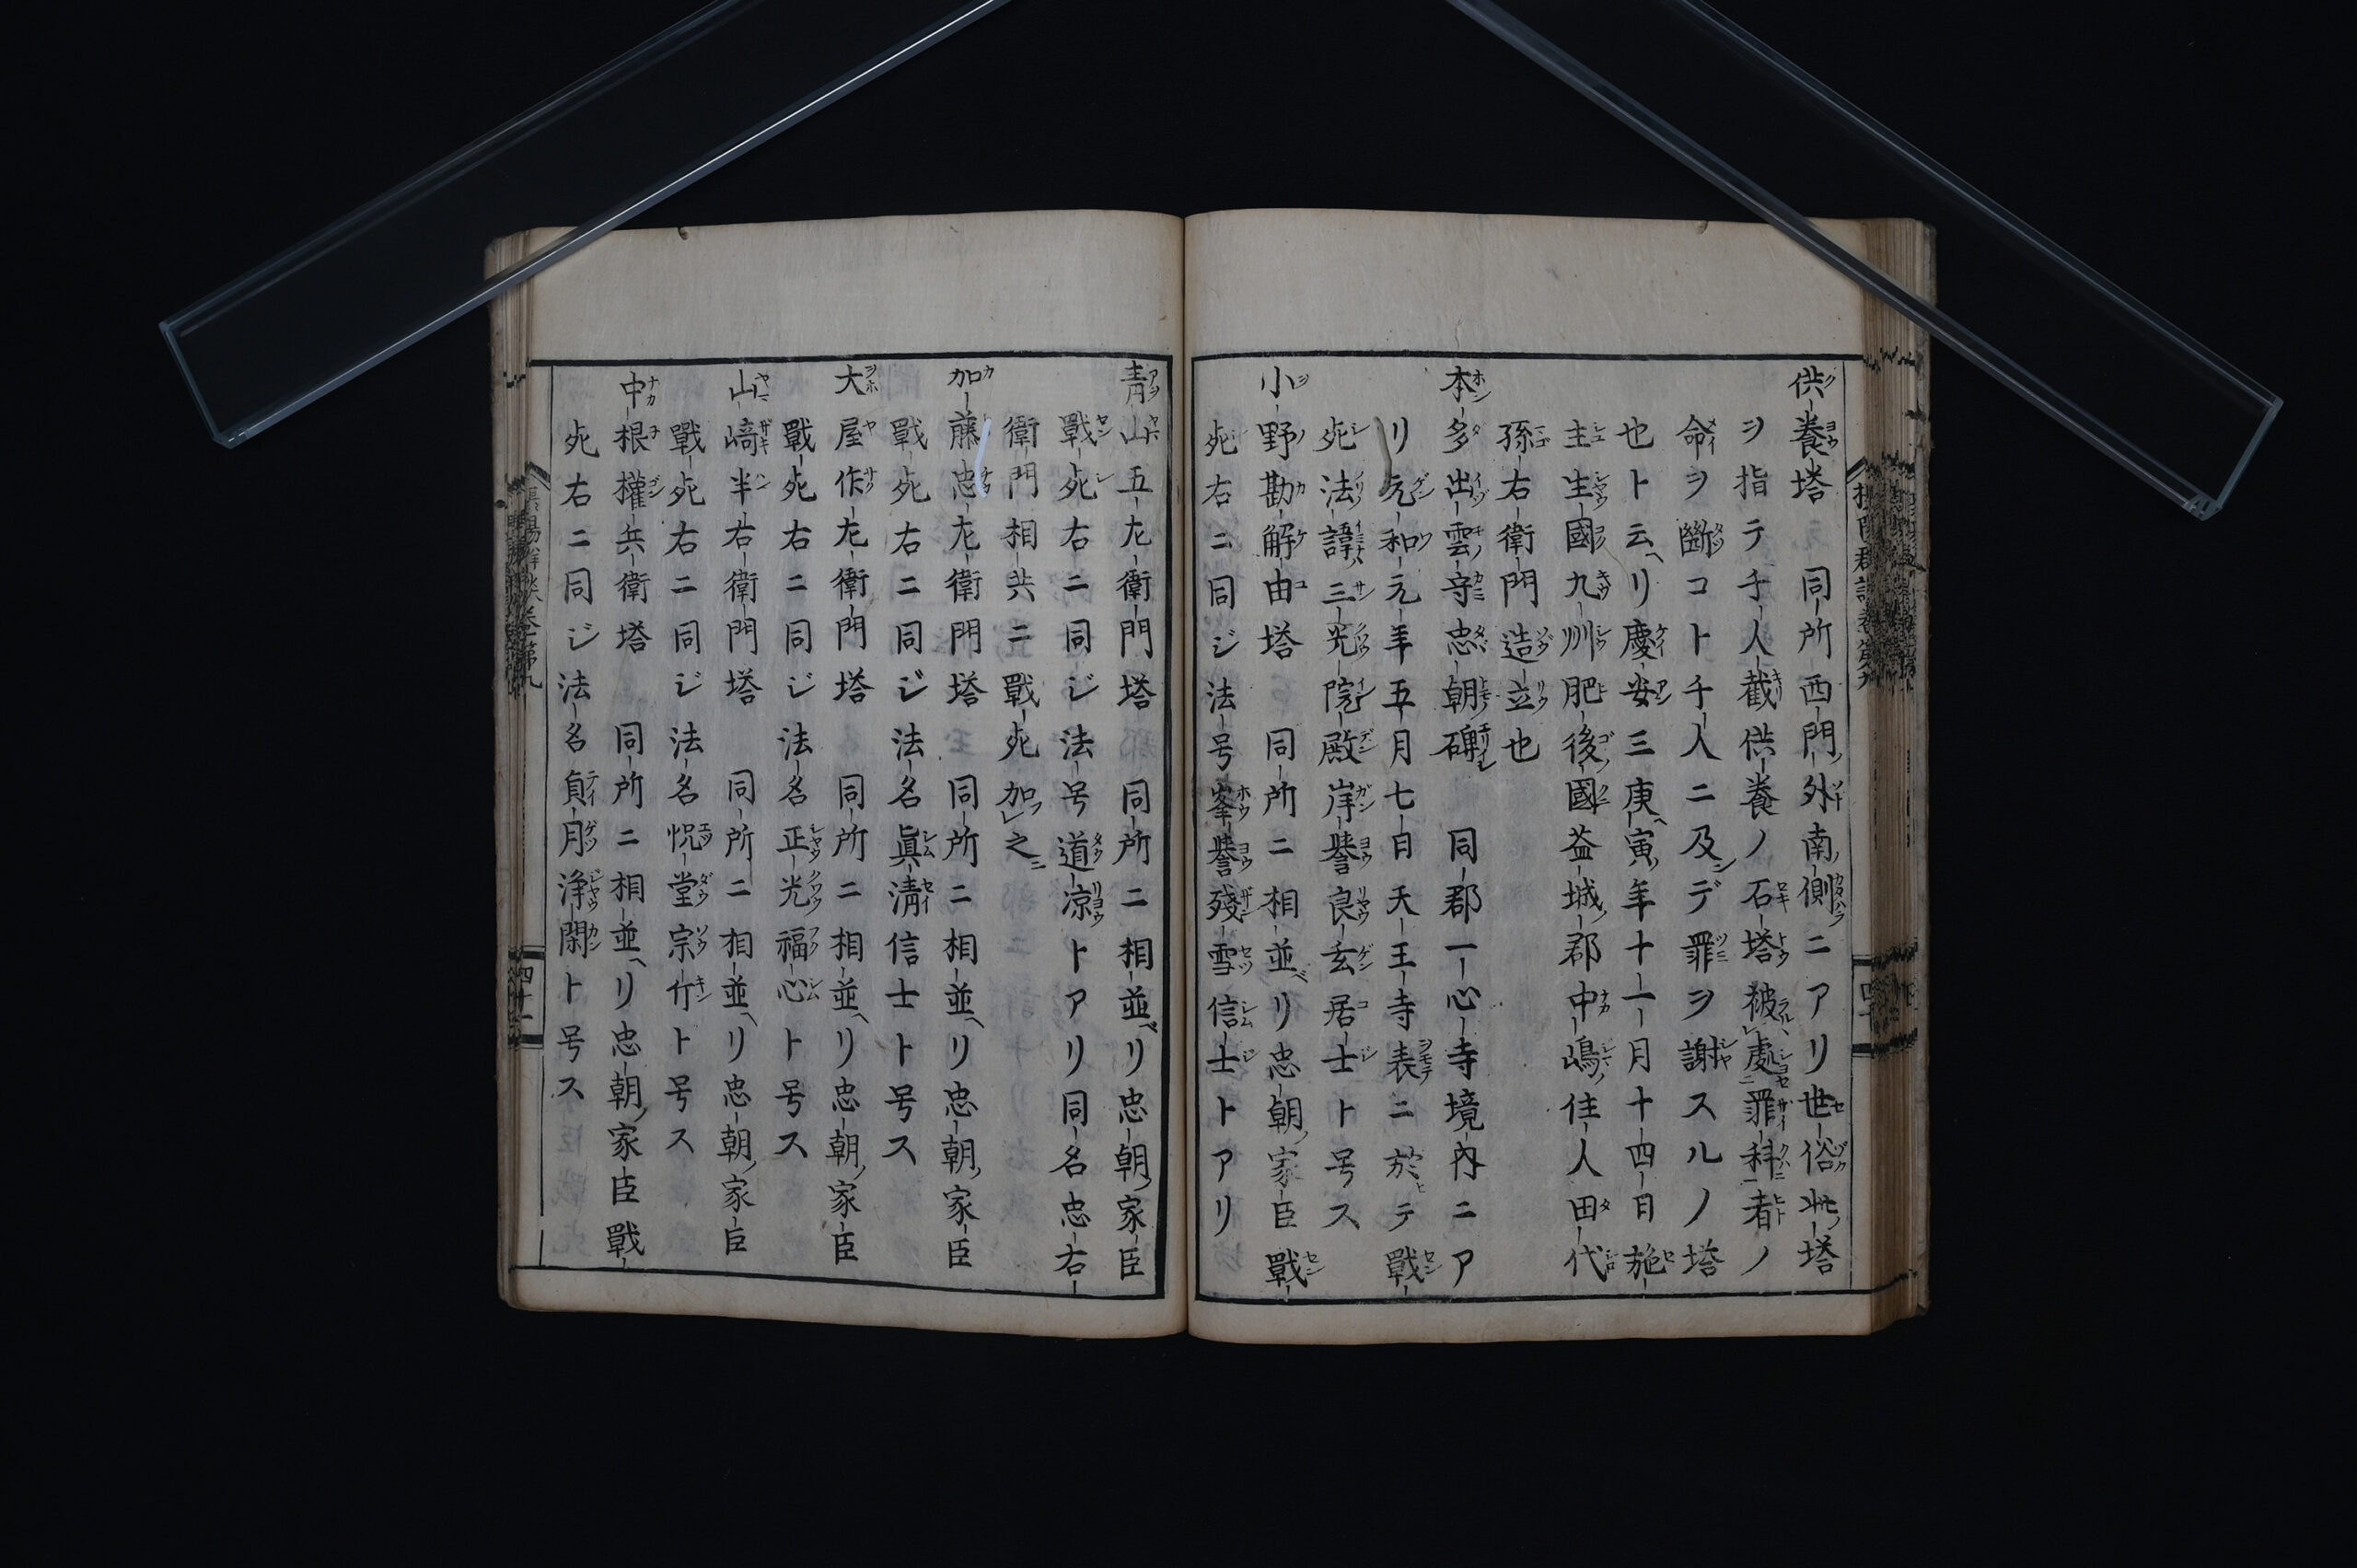 供養塔 同所西門外南側ニアリ世俗此塔
ヲ指テ千人截供養ノ石塔被處罪科者ノ
命ヲ斷コト千人ニ及デ罪ヲ謝スルノ塔
也ト云リ慶安三庚寅年十一月十四日施
主生國九州肥後國益城郡中嶋住人田代
孫右衛門造立也
本多出雲守忠朝碑 同郡一心寺境内ニア
リ元和元年五月七日天王寺表ニ於テ戰
死法諱三光院殿岸譽良玄居士ト号ス
小野勘解由塔 同所ニ相並リ忠朝家臣戰
死右ニ同ジ法号峯譽殘雪信士トアリ
青山五左衛門塔 同所ニ相並リ忠朝家臣
戰死右ニ同ジ法号道凉トアリ同名忠右
衛門相共ニ戰死加之
加藤忠左衛門塔 同所ニ相並リ忠朝家臣
戰死右ニ同ジ法名眞淸信士ト号ス
大屋作左衛門塔 同所ニ相並リ忠朝家臣
戰死右ニ同ジ法名正光福心ト号ス
山﨑半右衛門塔 同所ニ相並リ忠朝家臣
戰死右ニ同ジ法名悦堂宗竹ト号ス
中根權兵衛塔 同所ニ相並リ忠朝家臣戰
死右ニ同ジ法名貞月淨閑ト号ス